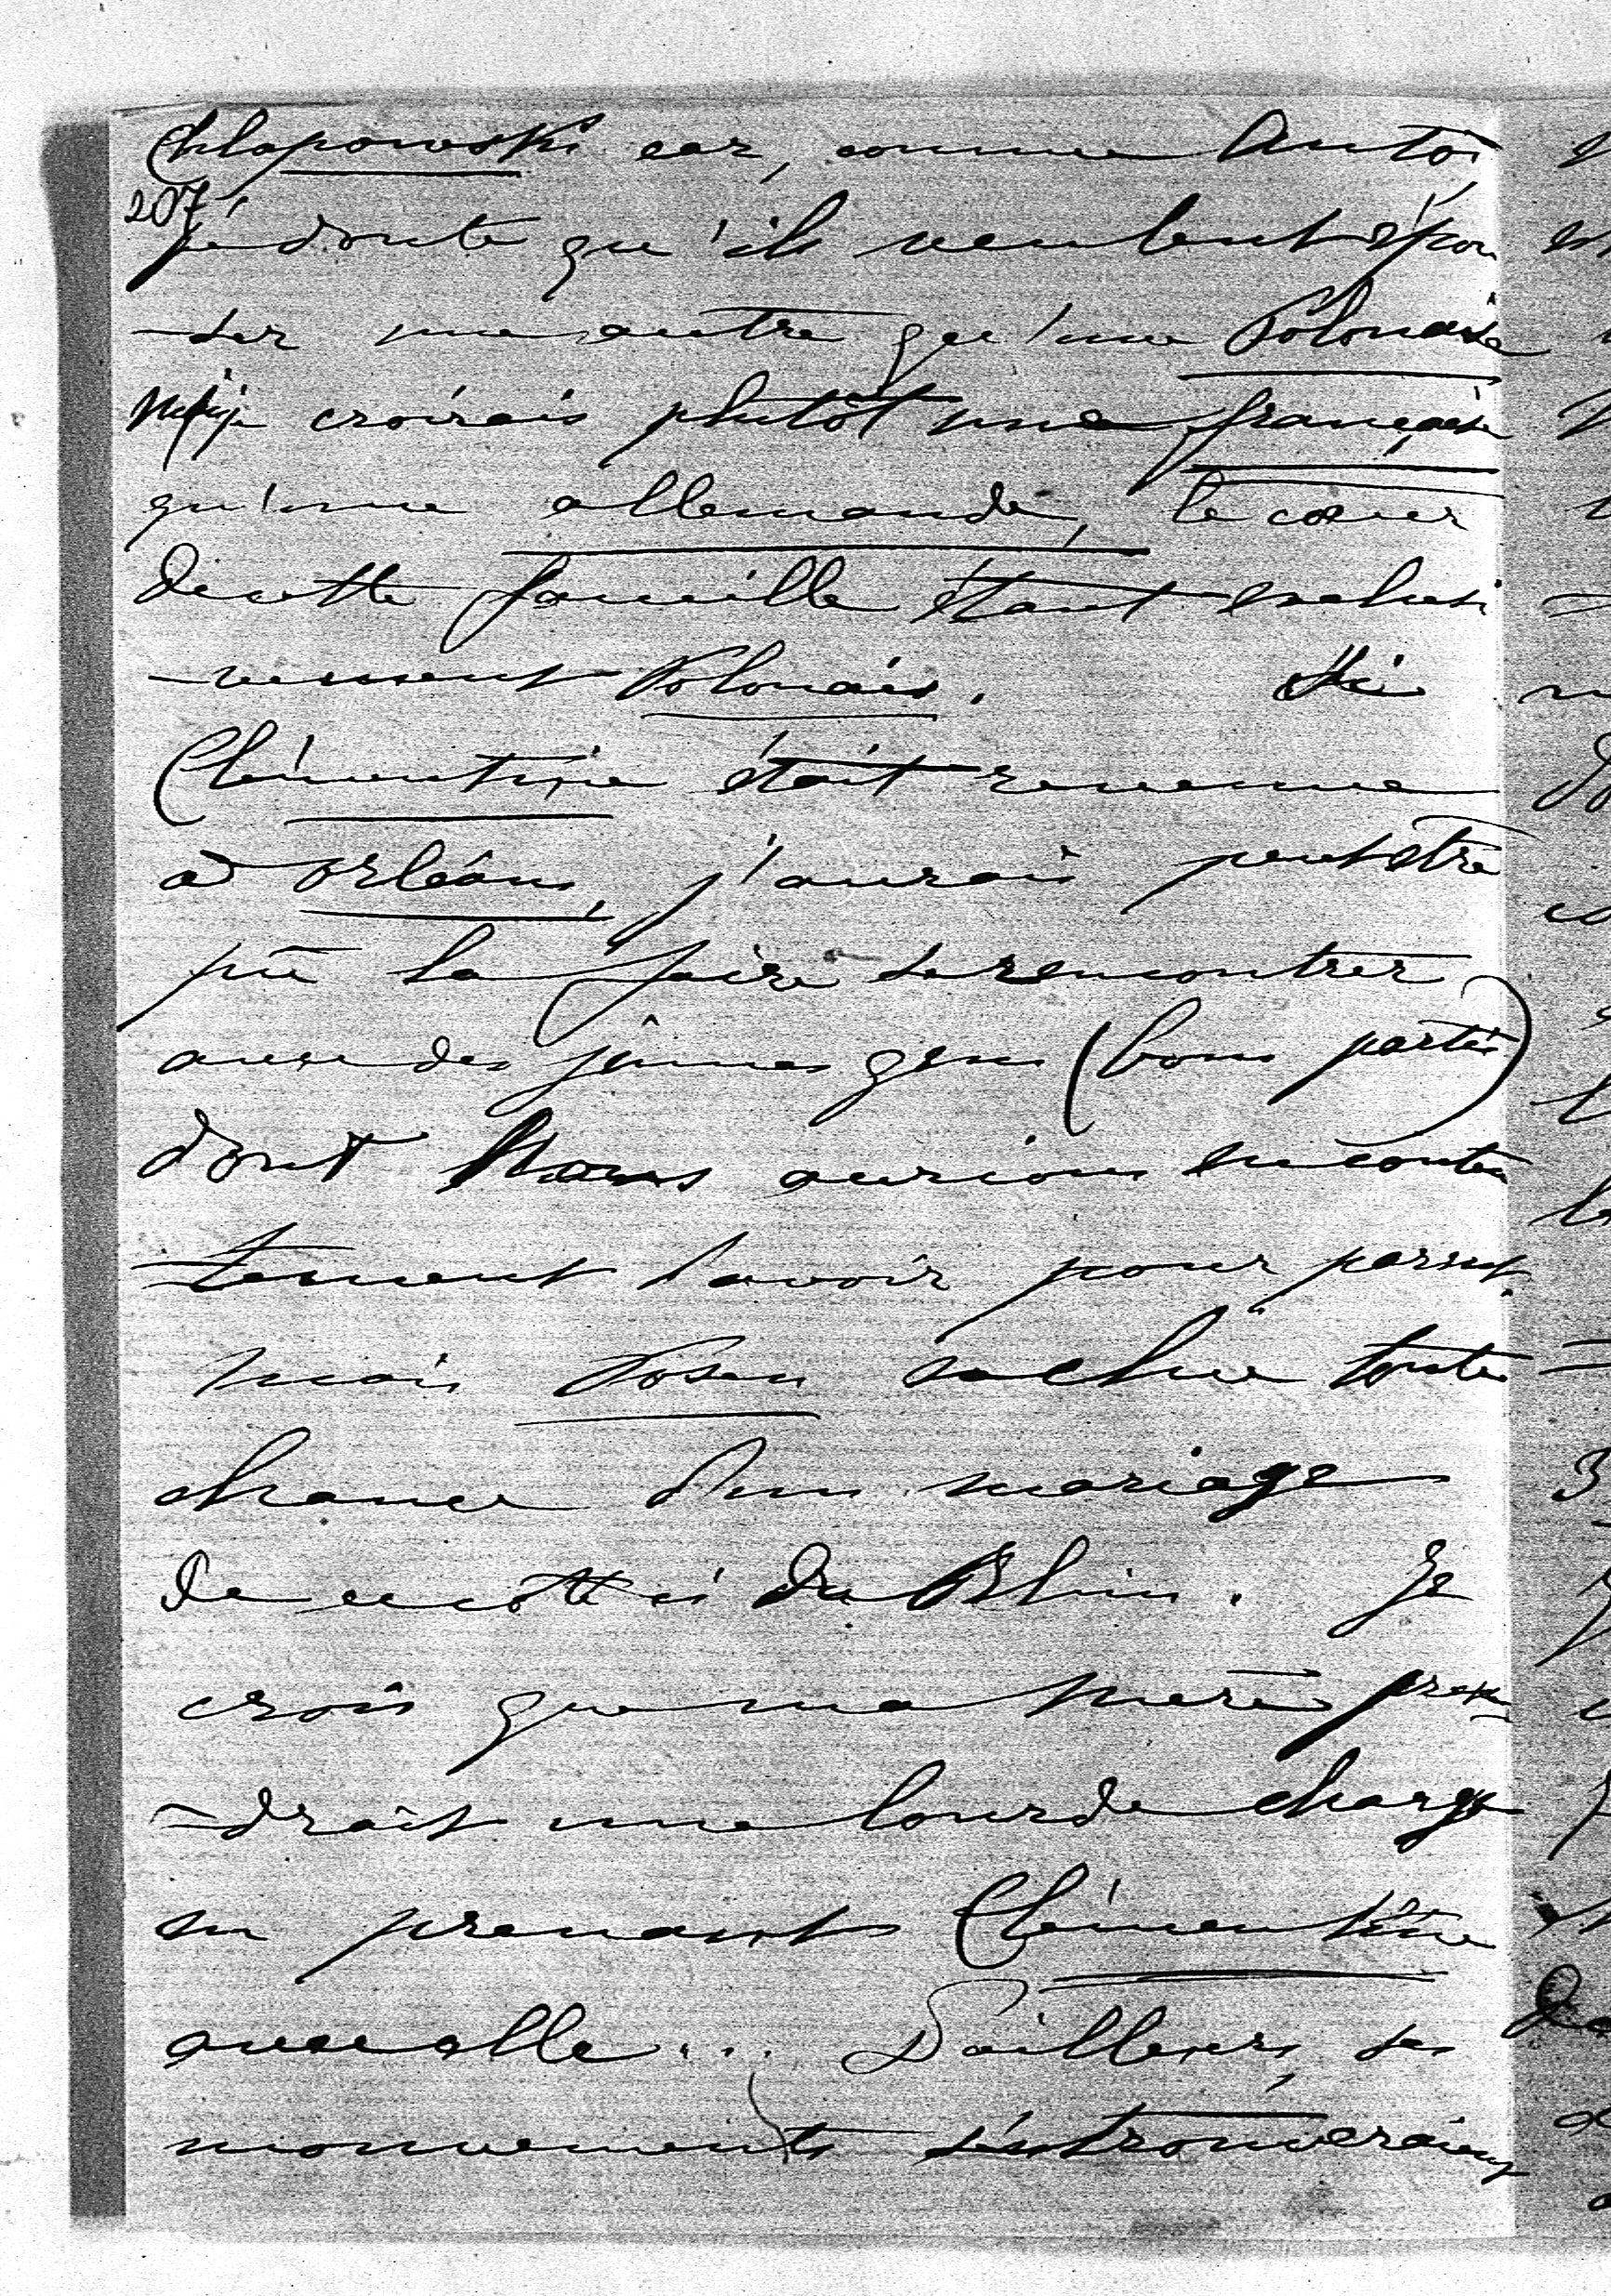 Chlapowski car, comme Antoi
207
je doute qu'ils veulent épou
-ser une autre qu'une Polonaise
ni je croirais plutôt une française
qu'une allemande, le cœur
de cette famille étant exclusi
-vement Polonais. Si
Clémentine était revenue
à Orléans, j'aurais peut être
pû la faire se rencontrer
avec des jeunes gens (bons partis)
dont Nous aurions
tement l'avoir pour parent.
mais Posen exclue toute
chance d'un mariage
de ce côté ci du Rhin. Je
crois que ma mère pren
-drait une lourde charge
en prenant Clémentine
avec elle... D'ailleurs, ses
mouvements s'en trouveraient